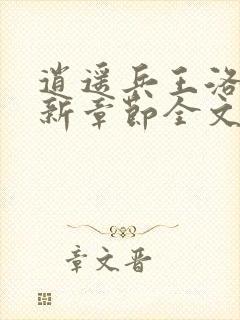 逍遥兵王洛
新章节全文
章文晋